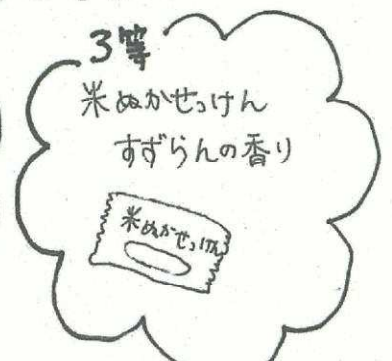 3等
米ぬかせっけん
すずらんの香り
米ぬかせっけん